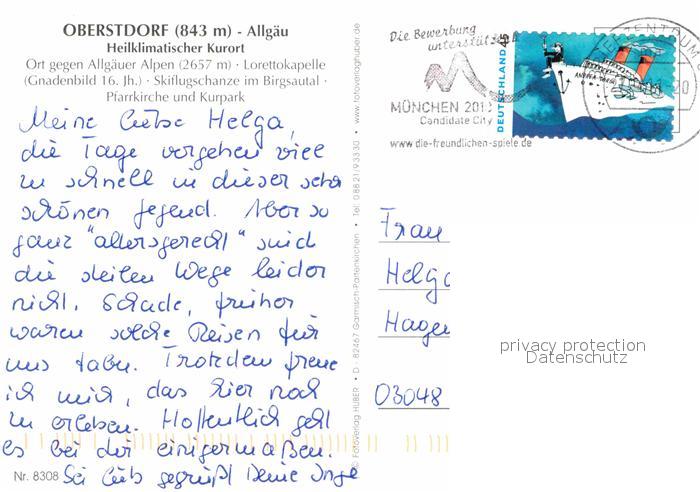 OBERSTDORF (843 m) - Allgäu
Heilklimatischer Kurort
Ort gegen Allgäuer Alpen (2657 m) · Lorettokapelle
(Gnadenbild 16. Jh.) · Skiflugschanze im Birgsautal ·
Pfarrkirche und Kurpark
Meine liebe Helga,
die Tage vergehen viel
zu schnell in dieser sehr
schönen Gegend. Aber so
ganz "altersgerecht" sind
die steilen Wege leider
nicht. Schade, früher
waren solche Reisen für
uns tabu. Trotzdem freue
ich mich, das hier noch
zu erleben. Hoffentlich geht
es bei dir einigermaßen.
Nr. 8308
Sei lieb gegrüßt Deine Inge
© Fotoverlag HUBER · D - 82467 Garmisch-Partenkirchen · Tel. 0 88 21/9 33 30 · www.fotoverlaghuber.de
Die Bewerbung
unterstützen
MÜNCHEN 201
Candidate City
www.die-freundlichen-spiele.de
DEUTSCHLAND 45
ANDREA
BRIEFZENTRUM
20
Frau
Helga
Hagen
03048
privacy protection
Datenschutz